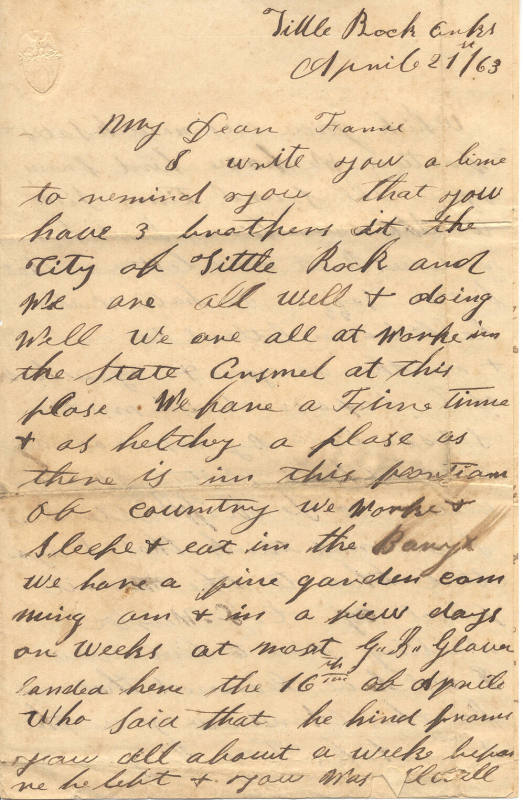 Little Rock Arks
Aprile 21st/63
My Dear Fannie
I write you a line
to remind you that you
have 3 brothers it the
City of Little Rock and
We are all well & doing
Well We are all at Worke in
the State Arsnel at this
plase We have a Fine time
& as helthey a plase as
there is in this portian
of country We Worke &
Sleepe & eat in the
We have a fine garden com
ming on & in a fiew days
or Weeks at most G. B. Glover
landed here the 16th of Aprile
Who said that he hird from
you all about a weeke befor
he left & you Was all well